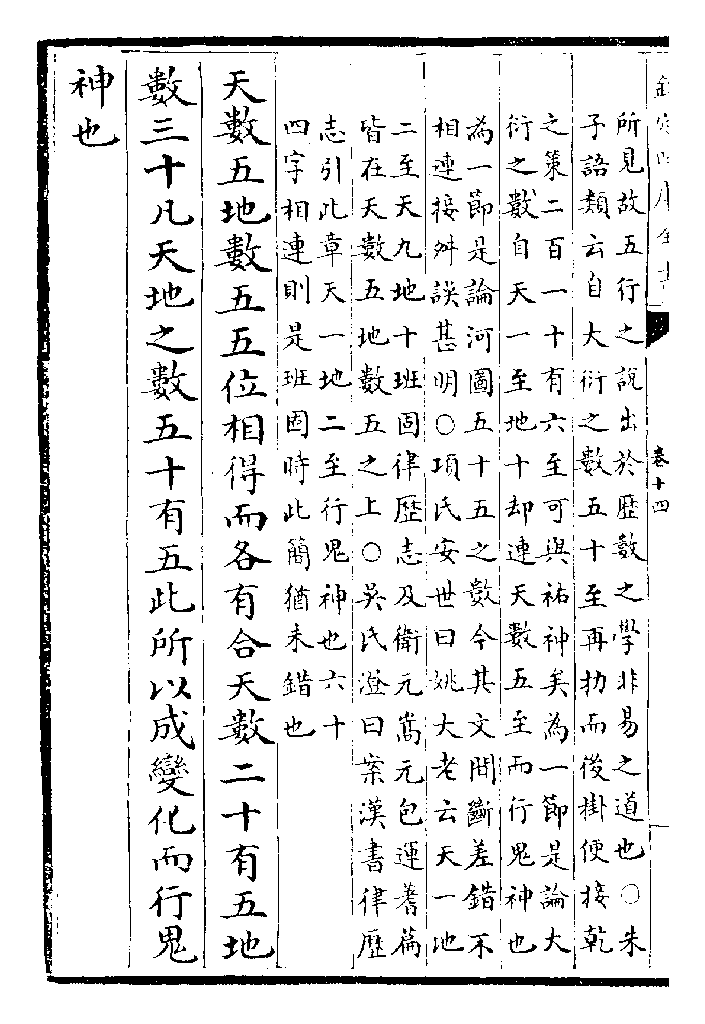 卷十四
所見故五行之説出於歴數之學非易之道也○朱
子語類云自大衍之數五十至再扐而後掛便接乾
之策二百一十有六至可與祐神矣為一節是論大
衍之數自天一至地十却連天數五至而行鬼神也
為一節是論河圖五十五之數今其文間斷差錯不
相連接舛誤甚明○項氏安世曰姚大老云天一地
二至天九地十班固律歴志及衛元嵩元包運蓍篇
皆在天數五地數五之上○吳氏澄曰案漢書律歴
志引此章天一地二至行鬼神也六十
四字相連則是班固時此簡猶未錯也
天數五地數五五位相得而各有合天數二十有五地
數三十凡天地之數五十有五此所以成變化而行鬼
神也